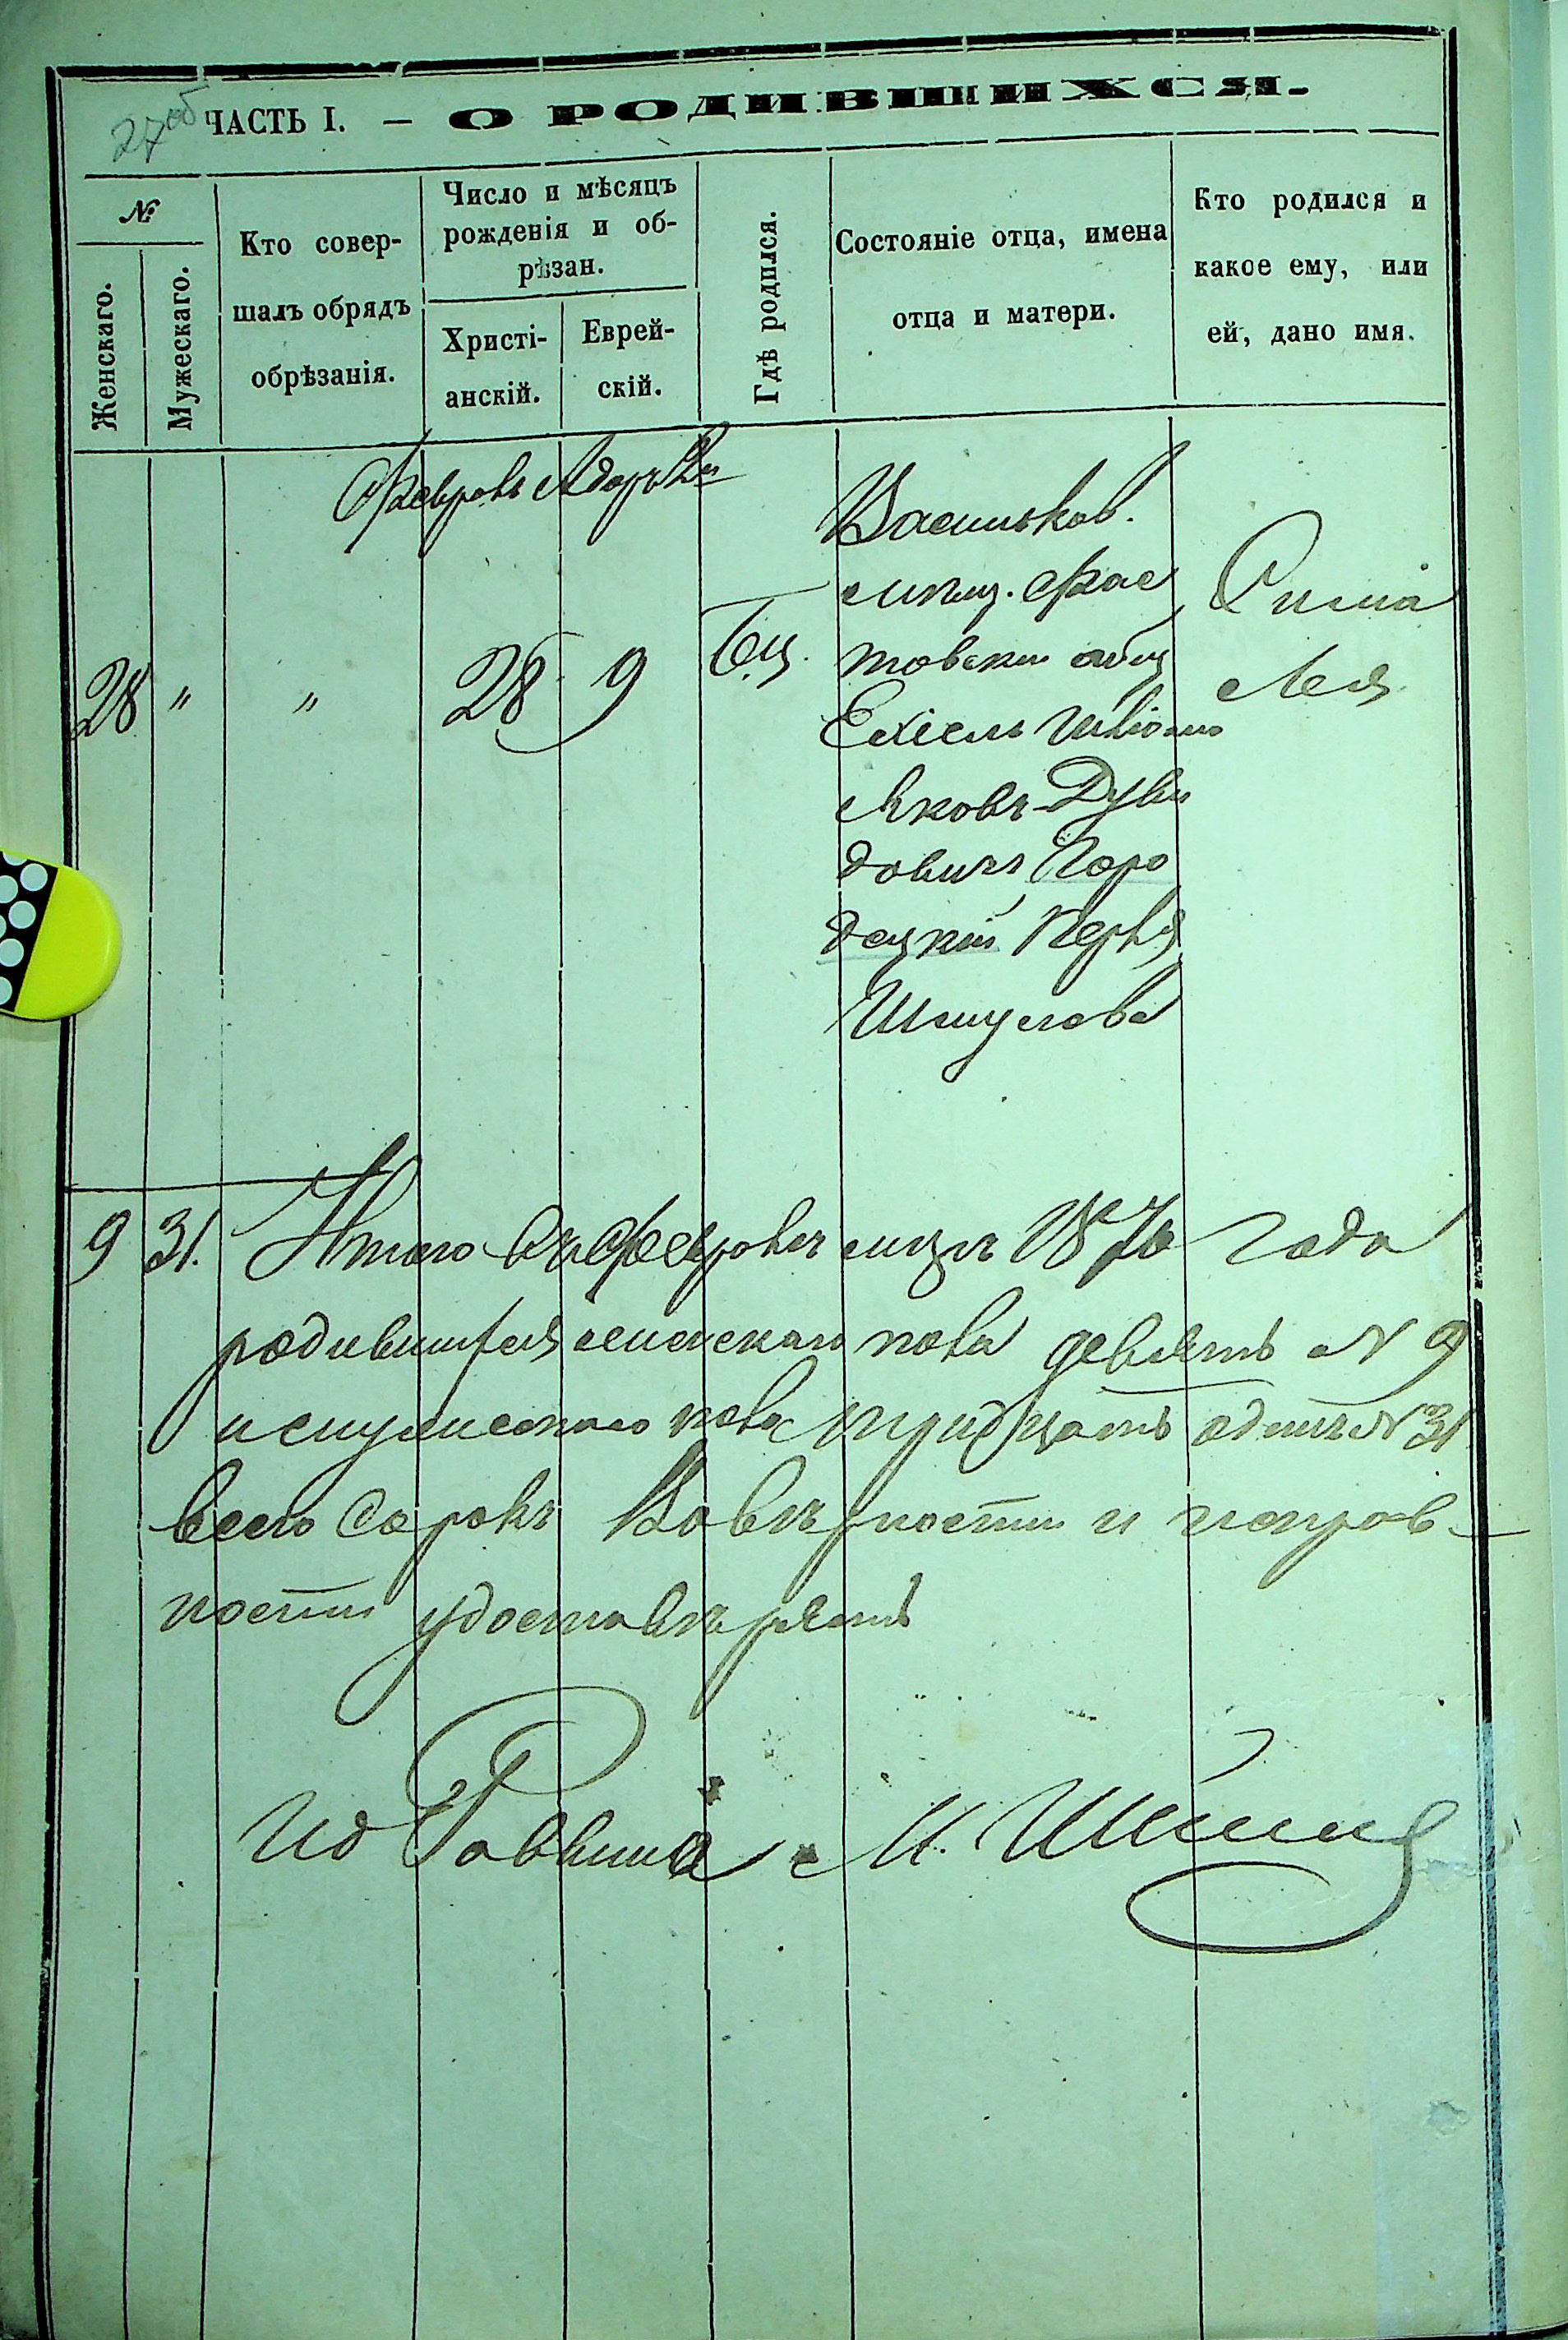 27об
ЧАСТЬ I. — О РОДИВШИХСЯ.
№
Женскаго.
Мужескаго.
Кто совер-
шалъ обрядъ
обрѣзанія.
Число и мѣсяцъ
рожденія и об-
рѣзан.
Христі-
анскій.
Еврей-
скій.
Гдѣ родился.
Состояніе отца, имена
отца и матери.
Кто родился и
какое ему, или
ей, дано имя.
Февраль Адаръ
Васильков.
мѣщ. Фас
товский общ
Ехіель
Яковъ Дуви
довичъ Горо
децкій Перля
Шмулева
28 " " 28 9 Бц.
Сима
Лея
9 31. Итого въ Февралѣ мцѣ 1876 Года
родившихся женскаго пола девять № 9
и мужескаго пола тридцать одинъ № 31
всего Сорокъ Вовѣрности и исправ-
ности удостовѣряетъ
Ид Раввина М.